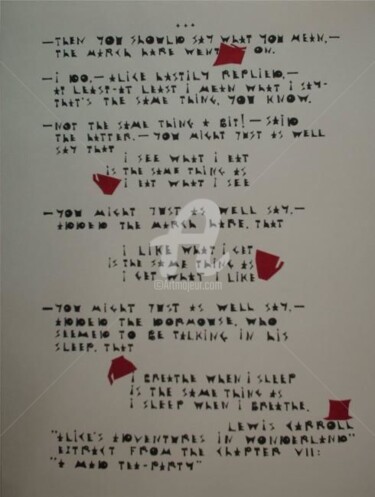 ***
—THEN YOU SHOULD SAY WHAT YOU MEAN,—
THE MARCH HARE WENT ON.
—I DO,— ALICE HASTILY REPLIED,—
AT LEAST—AT LEAST I MEAN WHAT I SAY—
THAT'S THE SAME THING, YOU KNOW.
—NOT THE SAME THING A BIT!— SAID
THE HATTER.— YOU MIGHT JUST AS WELL
SAY THAT
I SEE WHAT I EAT
IS THE SAME THING AS
I EAT WHAT I SEE
—YOU MIGHT JUST AS WELL SAY,—
ADDED THE MARCH HARE, THAT
I LIKE WHAT I GET
IS THE SAME THING AS
I GET WHAT I LIKE
©Artmajeur.com
—YOU MIGHT JUST AS WELL SAY,—
ADDED THE DORMOUSE, WHO
SEEMED TO BE TALKING IN HIS
SLEEP, THAT
I BREATHE WHEN I SLEEP
IS THE SAME THING AS
I SLEEP WHEN I BREATHE.
LEWIS CARROLL
"ALICE'S ADVENTURES IN WONDERLAND"
EXTRACT FROM THE CHAPTER VII:
"A MAD TEA-PARTY"